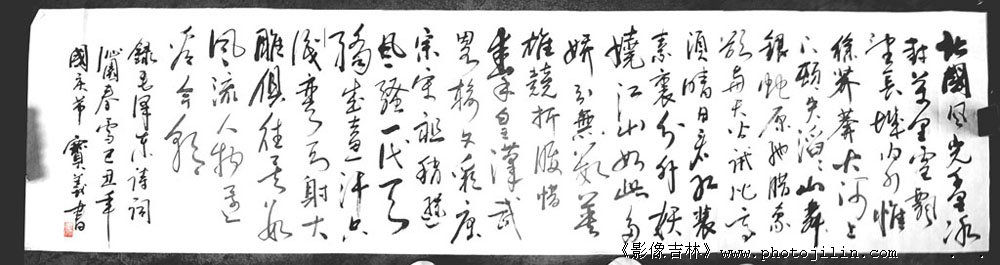 北國风光千里冰
封万里雪飘
望長城内外惟
馀莽莽大河上
下頓失滔滔山舞
银蛇原馳腊象
欲与天公试比高
须晴日看红装
素裹分外妖
娆江山如此多
娇引無數英
雄競折腰惜
秦皇漢武
略输文彩唐
宗宋祖稍遜
风骚一代天
骄成吉思汗只
識弯弓射大
雕俱往矣数
风流人物还
看今朝
錄毛澤东诗詞
沁園春雪己丑年
國庆节 寶義書
《影像吉林》www.photojilin.com